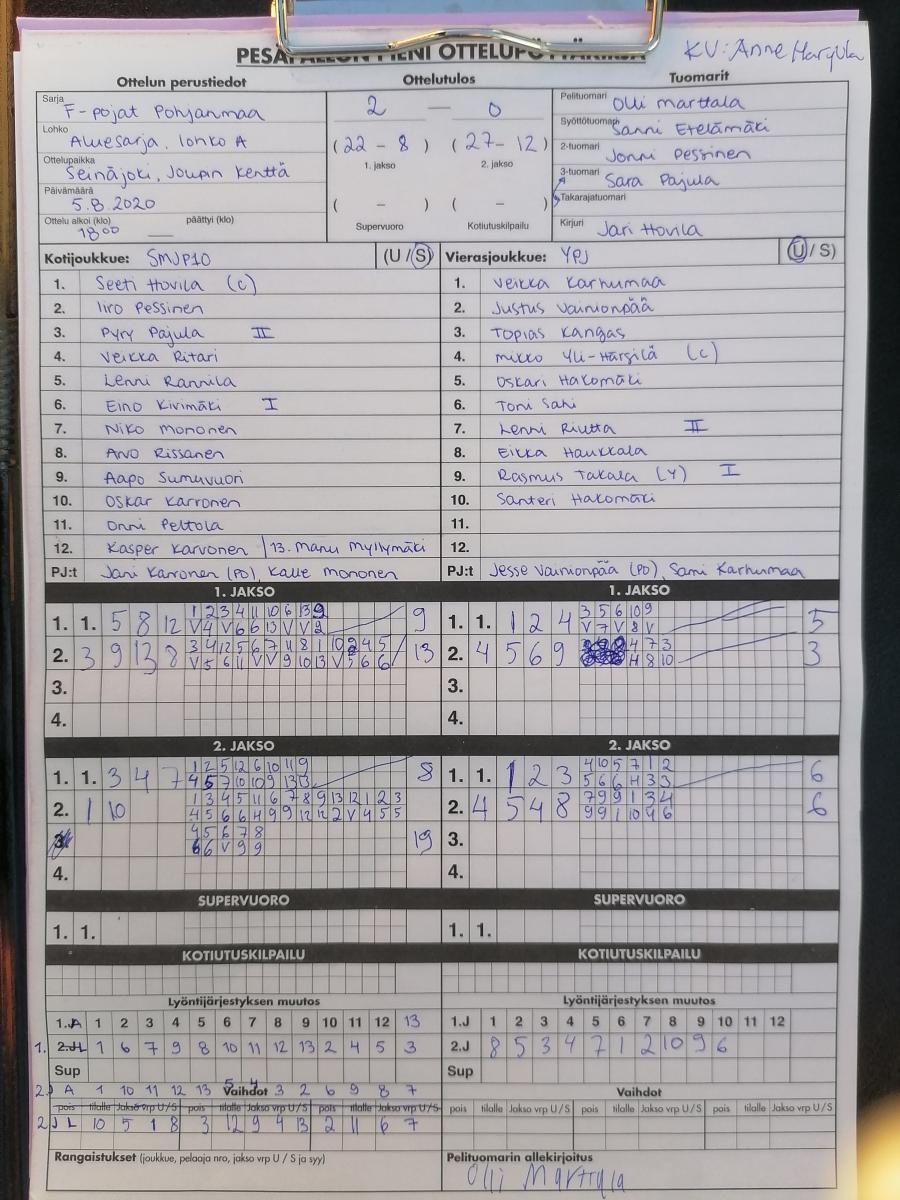 KV: Anne Harjula
Ottelun perustiedot
Ottelutulos
Tuomarit
Sarja
F-pojat Pohjanmaa
Lohko
Aluesarja, lohko A
Ottelupaikka
Seinäjoki, Joupin kenttä
Päivämäärä
5.8.2020
Ottelu alkoi (klo) päättyi (klo)
18 00
2 — 0
( 22 - 8 ) ( 27 - 12 )
1. jakso 2. jakso
( – ) ( – )
Supervuoro Kotiutuskilpailu
Pelituomari Olli Marttala
Syöttötuomari Sanni Etelämäki
2-tuomari Jonni Pessinen
3-tuomari Sara Pajula
Takarajatuomari
Kirjuri Jari Hovila
Kotijoukkue: SMJP10 (U / S)
1. Seeti Hovila (C)
2. Iiro Pessinen
3. Pyry Pajula II
4. Veikka Ritari
5. Lenni Rannila
6. Eino Kivimäki I
7. Niko Mononen
8. Arvo Rissanen
9. Aapo Sumuvuori
10. Oskar Karvonen
11. Onni Peltola
12. Kasper Karvonen / 13. Manu Myllymäki
PJ:t Jani Karvonen (PO), Kalle Mononen
Vierasjoukkue: YPJ (U / S)
1. Veikka Karhumaa
2. Justus Vainionpää
3. Topias Kangas
4. Mikko Yli-Hargilä (C)
5. Oskari Hakomäki
6. Toni Sahi
7. Lenni Riutta II
8. Eikka Haukkala
9. Rasmus Takala (Y) I
10. Santeri Hakomäki
11.
12.
PJ:t Jesse Vainionpää (PO), Sami Karhumaa
1. JAKSO
1. 1. 5 8 12 1 2 3 4 11 10 6 13 9 9
V 4 V 6 6 13 V V 2
2. 3 9 13 8 3 4 12 5 6 7 11 8 1 10 2 4 5 13
V 5 6 11 V V 9 10 13 V 5 6 6
3.
4.
1. JAKSO
1. 1. 1 2 4 3 5 6 10 9 5
V 7 V 8 V
2. 4 5 6 9 4 7 3 3
4 8 10
3.
4.
2. JAKSO
1. 1. 3 4 7 1 2 5 12 6 10 11 9 8
4 5 7 10 10 9 13 13
2. 1 10 1 3 4 5 11 6 7 8 9 13 12 1 2 3
4 5 6 6 4 9 9 12 12 2 V 4 5 5
3. 4 5 6 7 8 19
6 6 V 9 9
4.
2. JAKSO
1. 1. 1 2 3 4 10 5 7 1 2 6
5 6 6 4 3 3
2. 4 5 4 8 7 9 9 1 3 4 6
9 9 1 10 4 6
3.
4.
SUPERVUORO
1. 1.
SUPERVUORO
1. 1.
KOTIUTUSKILPAILU
KOTIUTUSKILPAILU
Lyöntijärjestyksen muutos
1. A 1 2 3 4 5 6 7 8 9 10 11 12 13
1. 2.JL 1 6 7 9 8 10 11 12 13 2 4 5 3
Sup
2. A 1 10 11 12 13 5 4 3 2 6 9 8 7
Vaihdot
pois tilalle Jakso vrp U/S pois tilalle Jakso vrp U/S pois tilalle Jakso vrp U/S
2. J L 10 5 1 8 3 12 9 4 13 2 11 6 7
Rangaistukset (joukkue, pelaaja nro, jakso vrp U / S ja syy)
Lyöntijärjestyksen muutos
1.J 1 2 3 4 5 6 7 8 9 10 11 12
2.J 8 5 3 4 7 1 2 10 9 6
Sup
Vaihdot
pois tilalle Jakso vrp U/S pois tilalle Jakso vrp U/S pois tilalle Jakso vrp U/S
Pelituomarin allekirjoitus
Olli Marttala